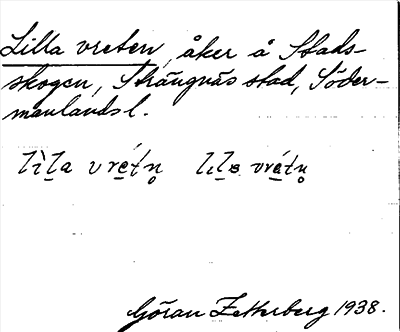 Lilla vreten, åker å Stads-
skogen, Strängnäs stad, Söder-
manlands l.
lìl̲a vré̲tn̥ lıl̲ɐ vré̲tn̥
Göran Zetterberg 1938.